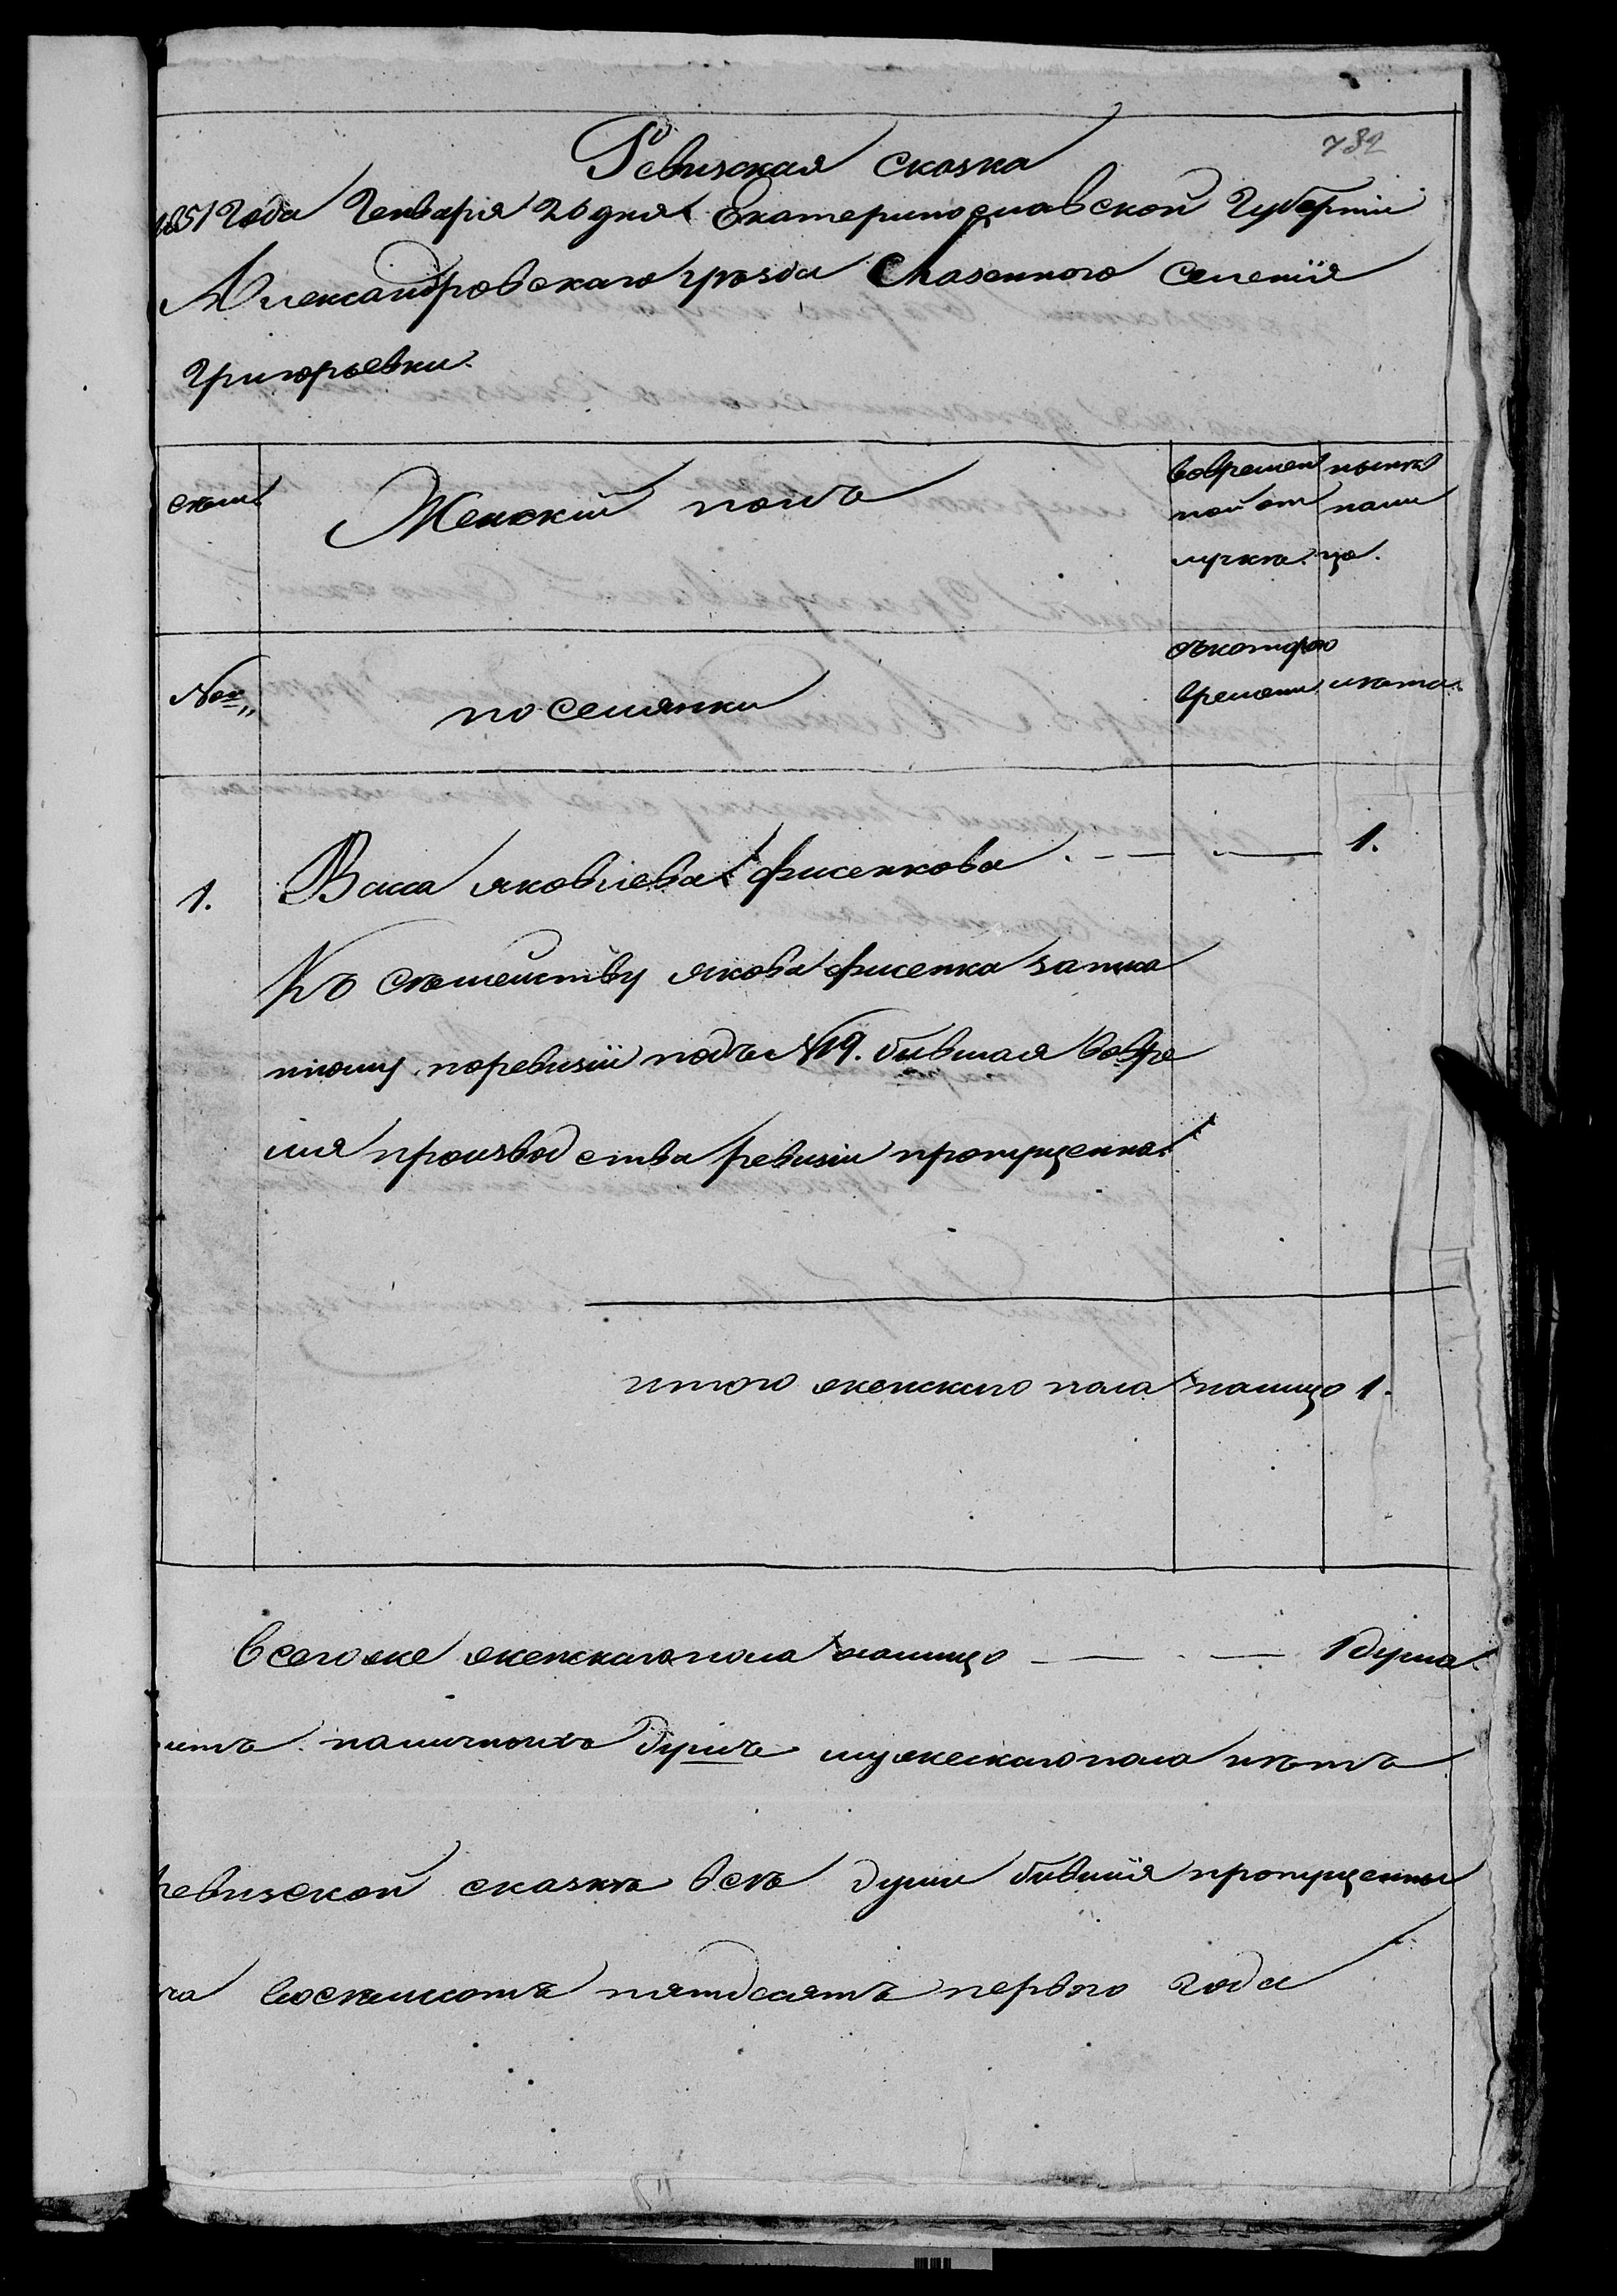 782
Ревизская сказка
1851 года Генваря 20 дня Екатеринославской Губерніи
Александровскаго уѣзда Казенного Селенія
Григорьевки.
Женскій полъ
во времен
ной от
лучкѣ.
нынѣ
нали
цо.
№
поселянки
съ которого
времени
лѣта.
1. Васа яковлева фисенкова 1.
Къ Сѣмейству якова фисенка записа
нному по ревизіи подъ №19. бывшая во вре
мя производства ревизіи пропущенна.
итого женскаго пола на лицо 1.
всего же женскаго пола на лицо 1 душа
наличныхъ душъ мужескаго пола нѣтъ
ревизской сказкѣ всѣ души бывшія пропущенны
восемьсотъ пятдесятъ перваго года